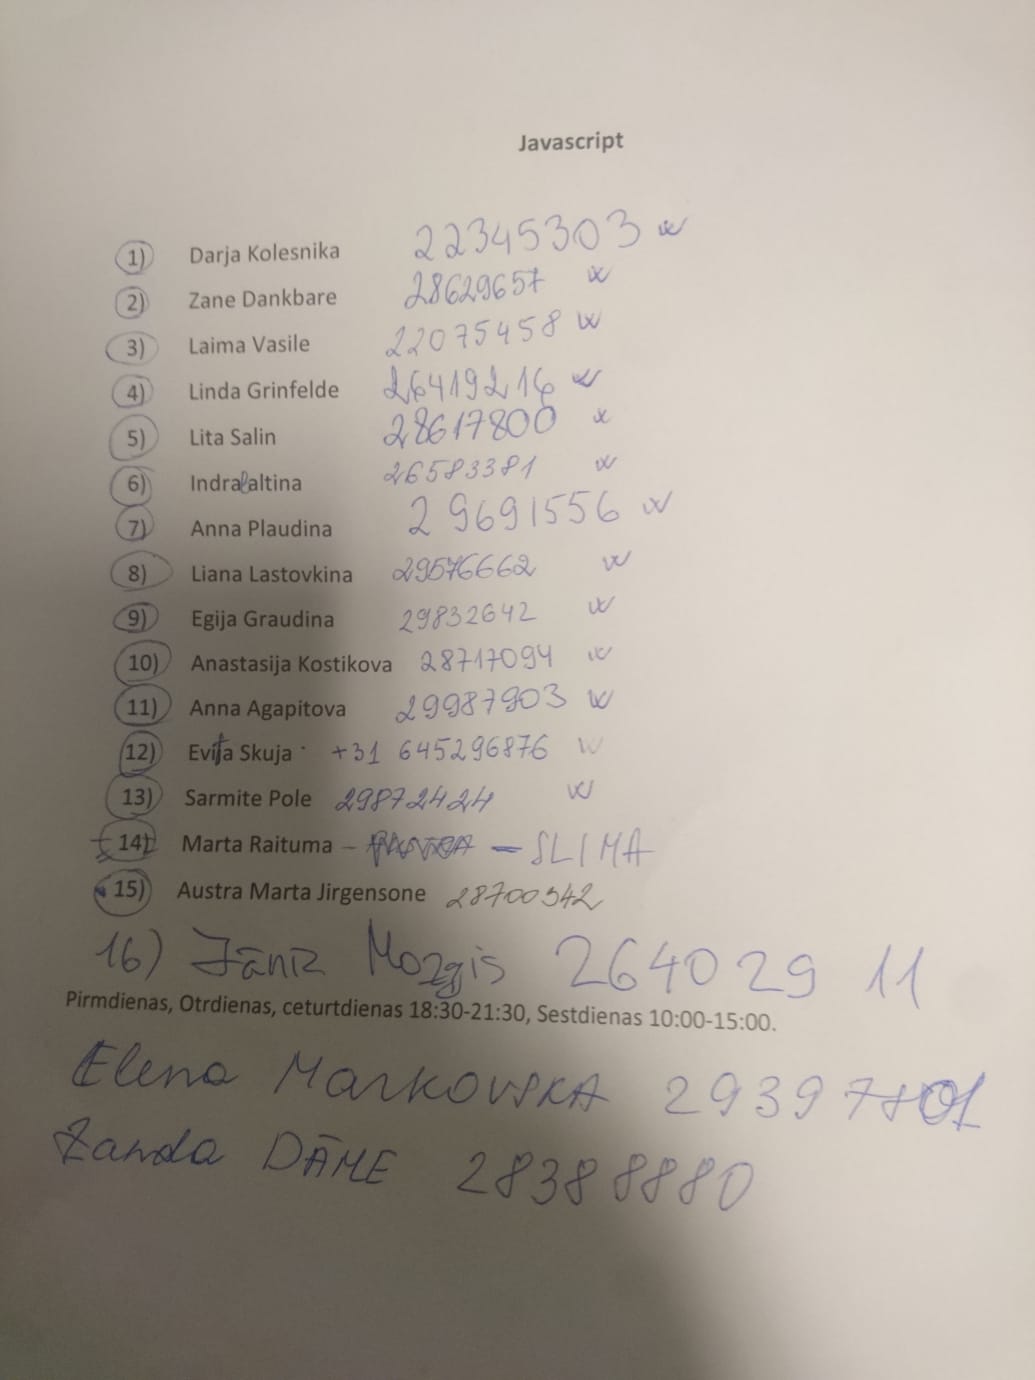 Javascript
1) Darja Kolesnika 22345303 w
2) Zane Dankbare 28629657 w
3) Laima Vasile 22075458 w
4) Linda Grinfelde 26419216 w
5) Lita Salin 28617800 x
6) Indra Baltina 26583381 w
7) Anna Plaudina 29691556 w
8) Liana Lastovkina 29576662 w
9) Egija Graudina 29832642 w
10) Anastasija Kostikova 28717094 w
11) Anna Agapitova 29987903 w
12) Evita Skuja +31 645296876 w
13) Sarmite Pole 29872424 w
14) Marta Raituma – – SLIMA
15) Austra Marta Jirgensone 28700342
16) Jānis Mozgis 264029 11
Pirmdienas, Otrdienas, ceturtdienas 18:30-21:30, Sestdienas 10:00-15:00.
Elena MARKOVSKA
Zanda DĀME 28388880